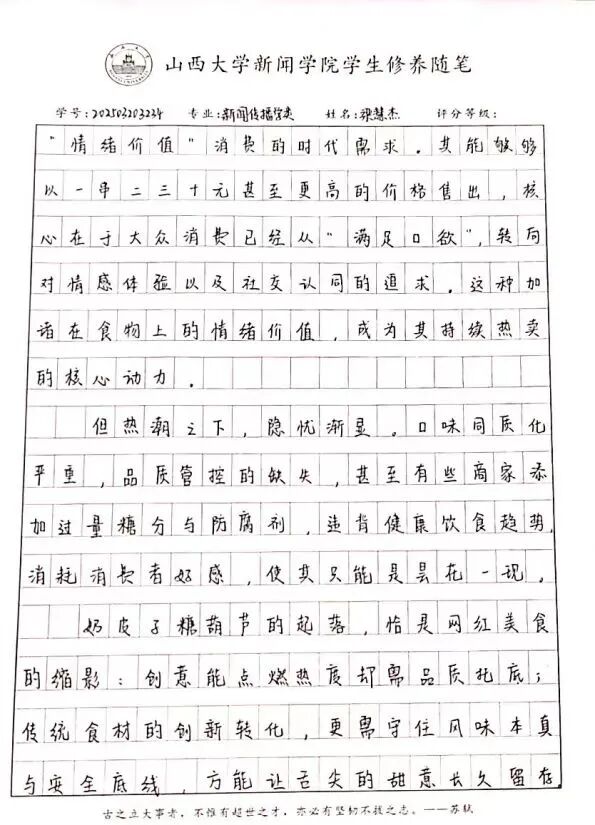 山西大学新闻学院学生修养随笔
学号：202503203234 专业：新闻传播学类 姓名：梁慧杰 评分等级：
“情绪价值”消费的时代需求．其能够够
以一串二三十元甚至更高的价格售出，核
心在于大众消费已经从“满足口欲”，转向
对情感体验以及社交认同的追求．这种加
诸在食物上的情绪价值，成为其持续热卖
的核心动力．
但热潮之下，隐忧渐显。口味同质化
严重，品质管控的缺失，甚至有些商家添
加过量糖分与防腐剂，违背健康饮食趋势，
消耗消费者好感，使其只能是昙花一现．
奶皮子糖葫芦的起落，恰是网红美食
的缩影：创意能点燃热度却需品质托底；
传统食材的创新转化，更需守住风味本真
与安全底线，方能让舌尖的甜意长久留存．
古之立大事者，不惟有超世之才，亦必有坚韧不拔之志。——苏轼